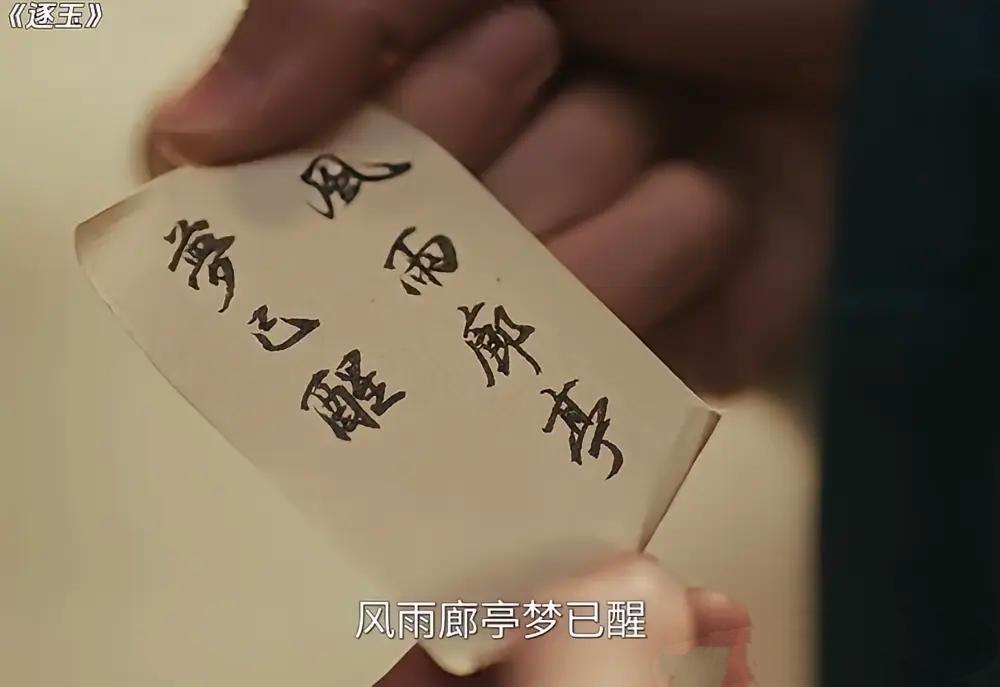 《逐玉》
風雨廊亭
夢已醒
风雨廊亭梦已醒